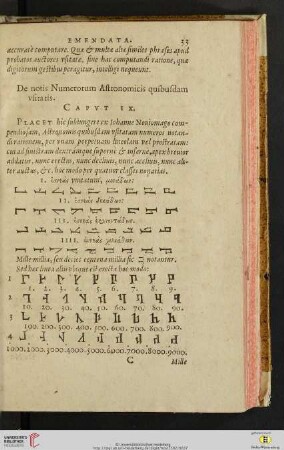 EMENDATA. 33
accurate computare. Quæ & multæ aliæ similes phrases apud
probatos auctores vsitatæ, sine hac computandi ratione, quæ
digitorum gestibus peragitur, intelligi nequeunt.
De notis Numerorum Astronomicis quibusdam
vsitatis.
CAPVT IX.
PLACET hic subiungere ex Iohanne Nouiomago com-
pendiosam, Astronomis quibusdam vsitatam numeros notan-
di rationem, per vnam perpetuam lineolam vel prostratam:
cui ad sinistram dextramque superne & inferne, apex breuior
additur, nunc erectus, nunc decliuis, nunc accliuis, nunc ali-
ter auctus, &c. hoc modo per quatuor classes negatiui.
I.
II.
III.
IIII.
Mille millia, seu decies centena millia sic notantur.
Sed hac linea aliis erecta hoc modo:
1
1. 2. 3. 4. 5. 6. 7. 8. 9.
2
10. 20. 30. 40. 50. 60. 70. 80. 90.
3
100. 200. 300. 400. 500. 600. 700. 800. 900.
4
1000. 2000. 3000. 4000. 5000. 6000. 7000. 8000. 9000.
C Mille